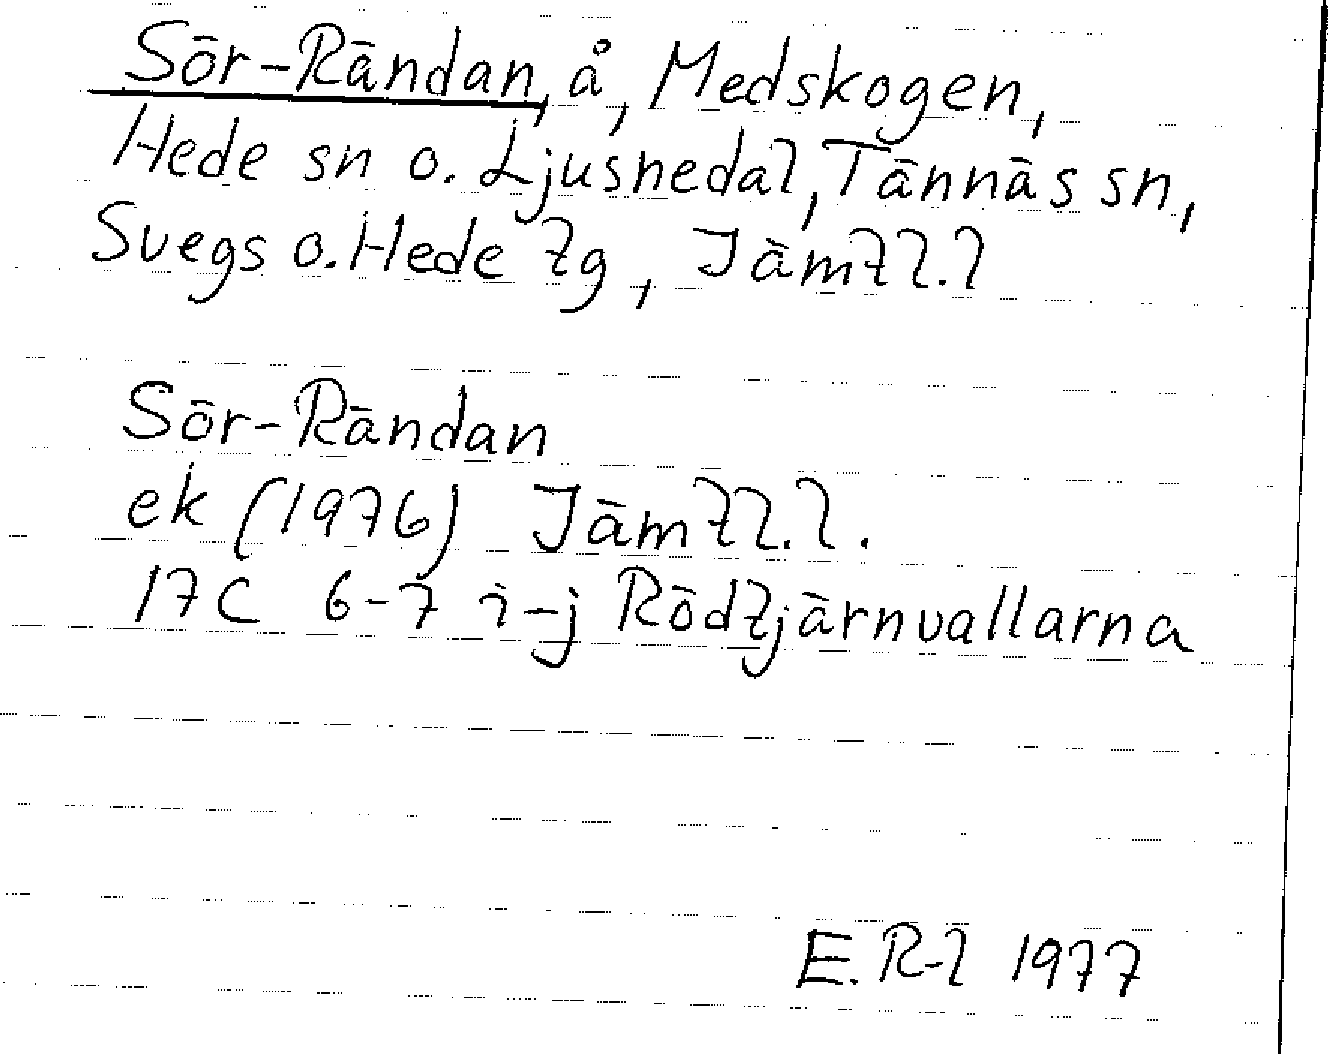 Sör-Rändan, å, Medskogen,
Hede sn o. Ljusnedal, Tännäs sn,
Svegs o. Hede tg, Jämtl.l
Sör-Rändan
ek (1976) Jämtl.l.
17C 6-7 i-j Rödtjärnvallarna
E. R-l 1977